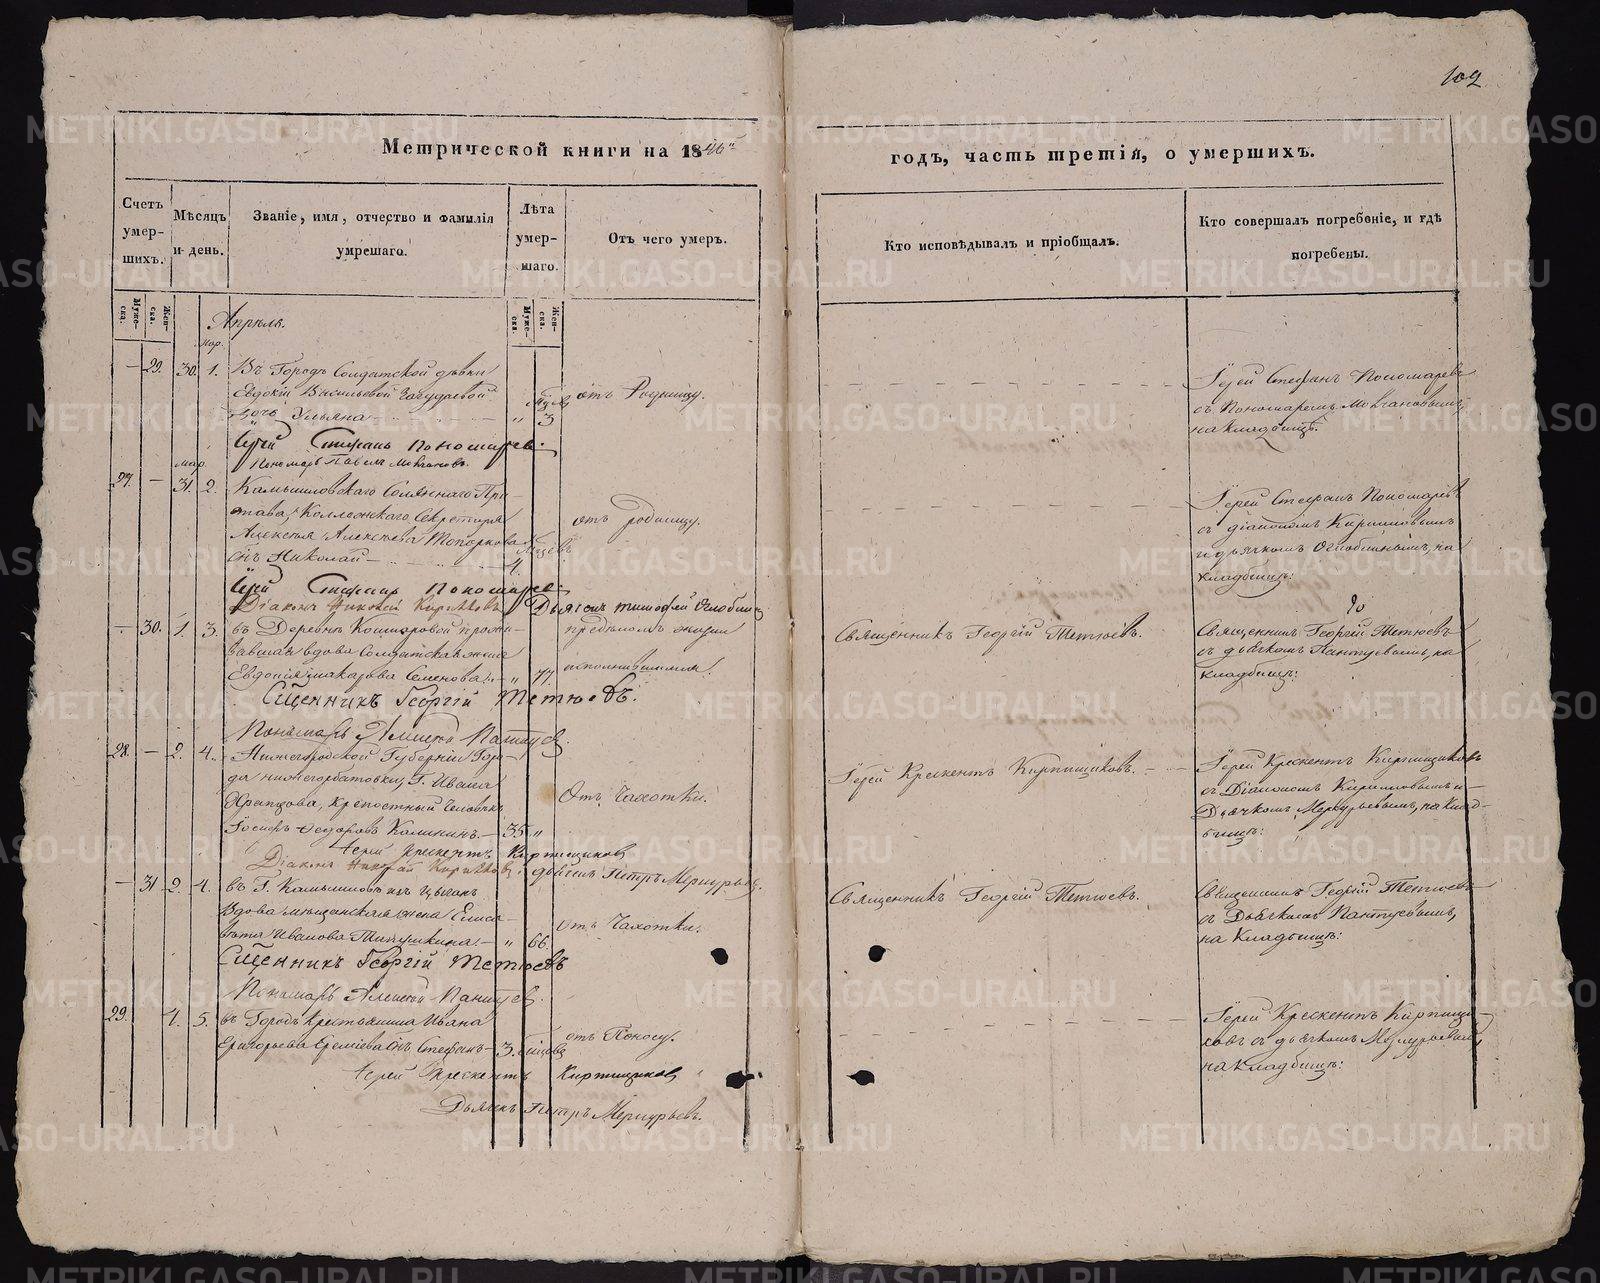 102
Метрической книги на 1846й
годъ, часть третія, о умершихъ.
Счетъ умер-шихъ.
Мѣсяцъ и день.
Званіе, имя, отчество и фамилія умрешаго.
Лѣта умер-шаго.
Отъ чего умеръ.
Кто исповѣдывалъ и пріобщалъ.
Кто совершалъ погребеніе, и гдѣ погребены.
Муже-ска.
Жен-ска.
Муже-ска.
Жен-ска.
Апрѣля.
Мар.
29. 30. 1. Въ Городѣ Солдатской дѣвки
Евдокіи Васильевой
дочь Ульяна
3
отъ Родимцу.
Іерей Стефанъ Пономаревъ
съ Пономаремъ
на кладбищѣ.
Іерей Стефанъ Пономаревъ.
Пономарь Павелъ
мар.
27. 31. 2. Камышловскаго Солянаго При-
става, Коллежскаго Секретаря
Алексѣя Алексѣева Топоркова
сынъ Николай
4.
отъ родимцу.
Іерей Стефанъ Пономаревъ
съ діакономъ Кирилловымъ
и дьячкомъ Оглоблинымъ, на
кладбищѣ:
Іерей Стефанъ Пономаревъ
Діаконъ Николай Кирилловъ Дьячекъ Тимофей Оглоблин
30. 1. 3. въ Деревнѣ прожи-
вавшая вдова Солдатская жена
Евдокія Макарова Семенова. 77
предѣломъ жизни
Священникъ Георгій Тетюевъ.
Священникъ Георгій Тетюевъ
съ дьячкомъ Пантуевымъ, на
кладбищѣ:
Сщенникъ Георгій Тетюевъ.
Пономарь Алексѣй Пантуев
28. 2. 4. Нижегородской Губерніи Горо-
да Г. Ивана
Крѣпостный Человѣкъ
Іосифъ Ѳедоровъ Калининъ. 35
Отъ Чахотки.
Іерей Крескентъ Кирпищиковъ.
Іерей Крескентъ Кирпищиковъ
съ Діакономъ Кирилловымъ и
Дьячкомъ Меркурьевымъ, на клад-
бищѣ:
Іерей Крескентъ Кирпищиков
Діаконъ Николай Кирилловъ дьячекъ Петръ Меркурьев.
31 2. 4. въ Г. Камышловѣ изъ
Вдова мѣщанская жена Елиса-
вета Иванова 66.
Отъ Чахотки.
Священникъ Георгій Тетюевъ.
Священникъ Георгій Тетюевъ
съ Дьячкомъ Пантуевымъ,
на Кладбищѣ:
Сщенникъ Георгій Тетюевъ
Пономарь Алексѣй Пантуев.
29. 4. 5. въ Городѣ Крестьянина Ивана
Григорьева сынъ Стефанъ 3.
отъ Поносу.
Іерей Крескентъ Кирпищи-
ковъ съ дьячкомъ Меркурьевымъ
на кладбищѣ:
Іерей Крескентъ Кирпищиков
Дьячекъ Петръ Меркурьевъ.